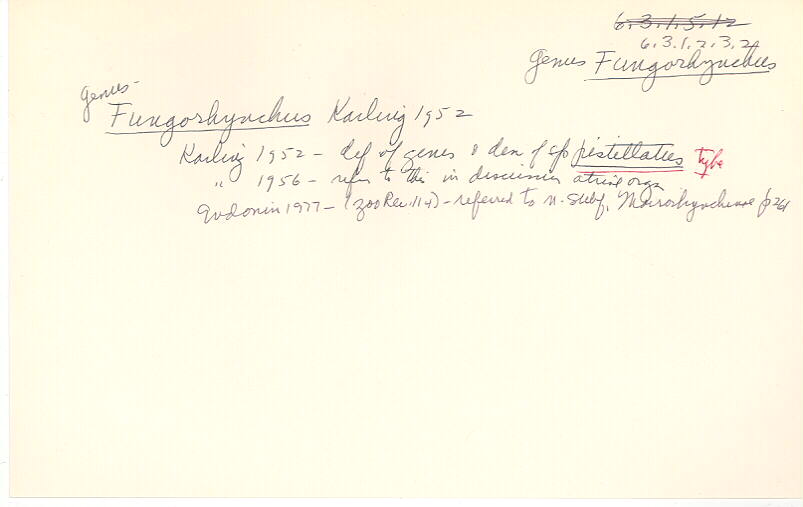 6.3.1.5.12
6.3.1.2.3.2
Genus Fungorhynchus
genus-
Fungorhynchus Karling 1952
Karling 1952 - def of genus & den of sp pistellatus type
" 1956 - refers to this in discussion atrial orgs
Evdonin 1977 - (Zoo Rec. 114) - referred to n. subf. Macrorhynchinae p 261